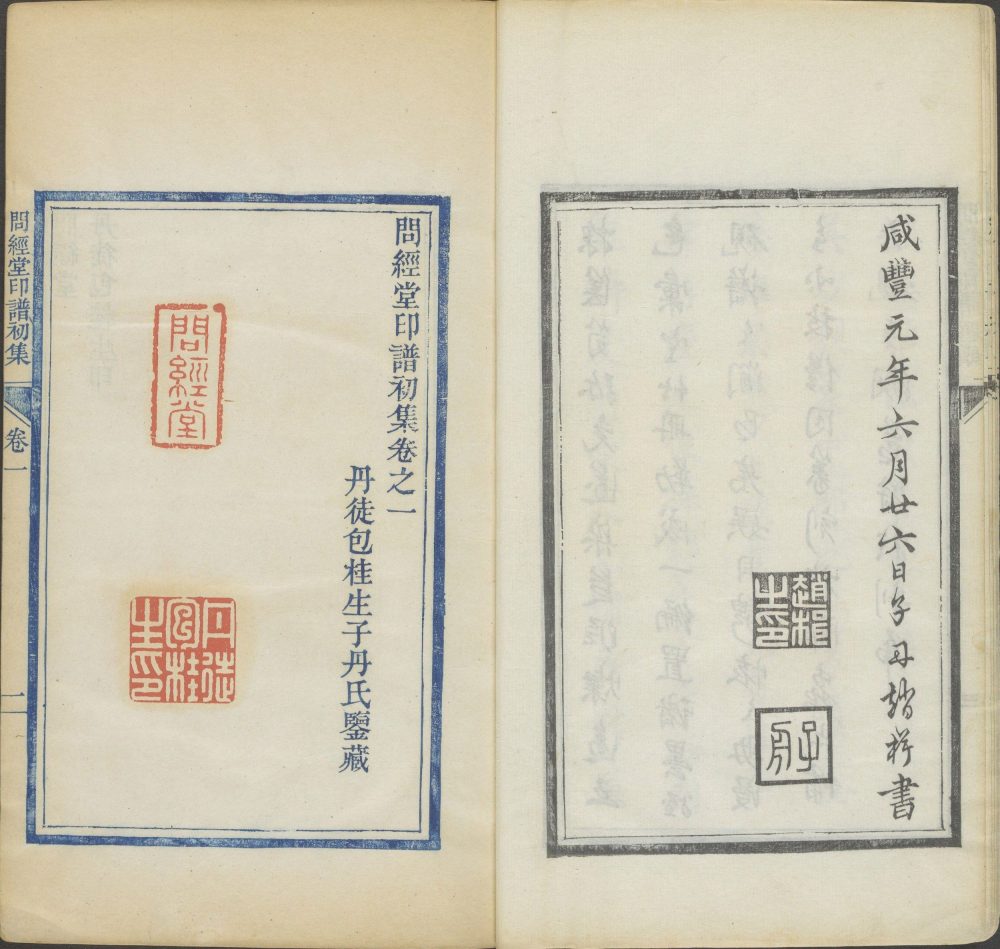 咸豐元年六月廿六日子舟趙書
趙之印
子舟
問經堂印譜初集卷之一
丹徒包桂生子丹氏鑒藏
問經堂
丹徒包桂生印
問經堂印譜初集
卷一
一